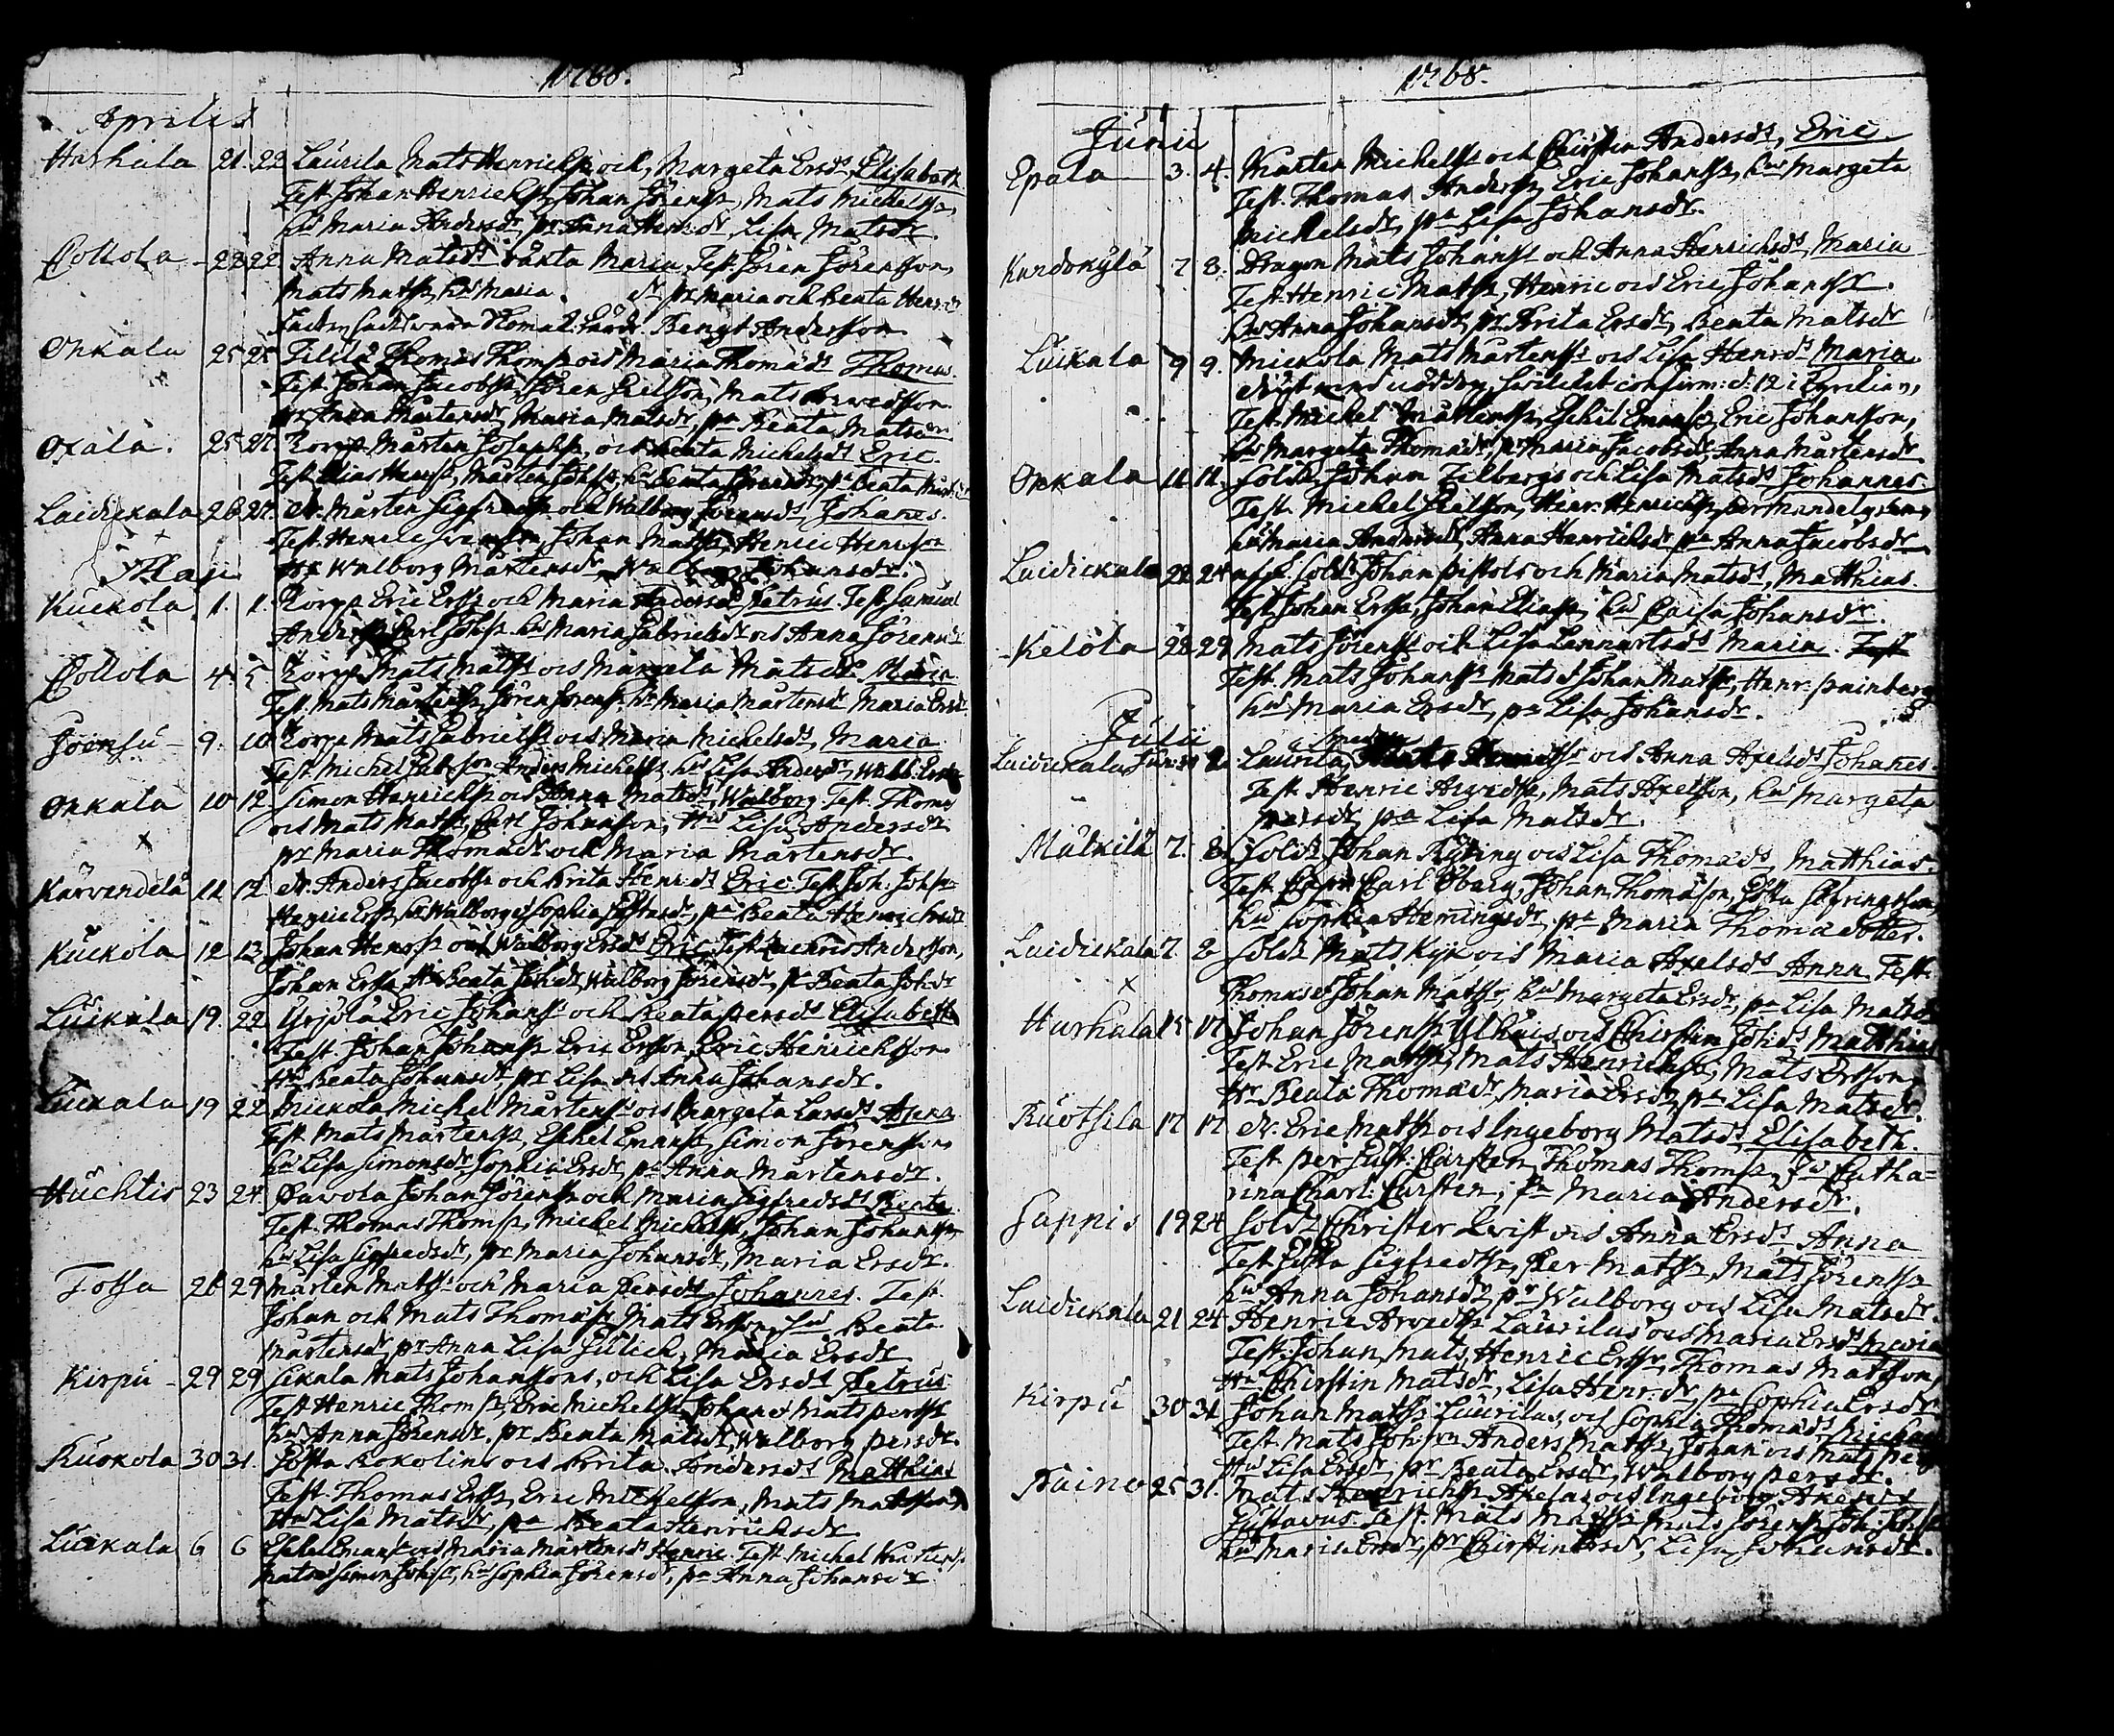 1768.
Aprilis
Harhala 21. 22 Laurila Mats Henrichss och Margeta Ersds Elisabeth
Test. Johan Henrichss, Johan Jörenss, Mats Michelss,
hu Maria Andersdr, pr Anna Henrsdr, Lisa Matsdr.
Collola - 22 22 Anna Matsds oäkta Maria Test. Jören Jörensson,
Mats Matss, hu Maria dr pr Maria och Beata Henr:
Bengt Andersson
Onkala 25 25 Tililä Thomas Thomss ock Maria Thomäds Thomas
Test. Johan Jacobss, Jören Mats
pr Anna Mårtensdr, Maria Matsdr, pa Beata Matsdr
Oxala. 25 27. Torp: Mårten Josephss, och Beata Michelsds Eric
Test. Elias Henrss, Mårten Johss, hu Beata pa Beata
Laidickala 26 27. Mårten Sigfredss och Walborg Jörensds Johanes.
Test. Henric Johan Matss, Henric Henrsson
Hu Walborg Mårtensdr, Walborg Johansdr.
Maji
Kuckola 1. 1. Torp: Eric Erss och Maria Andersds Petrus. Test. Samuel
Anderss, Carl Johss. hu Maria Gabrielsdr ock Anna Jörensdr
Collola 4. 5 Torp: Mats Matss ock Margeta Matsds Maria
Test. Mats Mårtenss, Jören Jörenss. hu Maria Mårtensdr Maria Ersdr
Joensu - 9. 10 Torp: Mats Gabrielss ock Maria Michelsds, Maria
Test. Michel Anders Michelss, hu Lisa Andersdr, Walb: Ersdr
Onkala 10 12 Simon Henrichss ock Anna Matsds, Walborg Test. Thoms
ock Mats Matss, Carl Johansson, Hu Lisa Andersdr
pr Maria Thomädr och Maria Mårtensdr
Karvendelä 11 12 Anders Jacobss och Brita Henr:ds Eric Test. Joh: Johss
Henric Erss, hu Walborg ock Sophia pa Beata Henrichsdr
Kuckola 12 13 Johan Henrss ock Walborg Ersds Eric Test. Andersson,
Johan Erss, Hu Beata Johsdr, Walborg Jörensdr, pr Beata Johsdr
Luckala 19. 22 Yrjölä Eric Johanss och Beata Persds Elisabeth
Test. Johan Johanss Eric Ersson, Eric Henrichsson
Hu Beata Johansdr, pr Lisa ock Anna Johansdr.
Luckala 19 22 Mickola Michel Mårtenss ock Margeta Larsds Anna
Test. Mats Mårtenss, Eskel Emanss Simon Jörensson,
hu Lisa Simonsdr, Sophia Ersdr, pa Anna Mårtensdr.
Huchtis 23 24 Pavola Johan Jörenss och Maria Sigfredsds Beata
Test. Thomas Thomss, Michel Michelss, Johan Johanss,
hu Lisa Sigfredsdr, pr Maria Johansdr, Maria Ersdr.
Tossa 28 29 Mårten Matss och Maria Persds Johannes. Test.
Johan och Mats Thomass, Mats Ersson, hu Beata
Mårtensdr pr Anna Lisa Maria Ersdr
Kirpu - 29 29 Sikala Mats Johanssons, och Lisa Ersds Petrus
Test Henric Thomss, Eric Michelss, Johan o Mats Perss
hu Anna Jörensdr. pr Beata Matsdr, Walborg Persdr.
Kuokola 30 31. Gösta Kokolins ock Brita Andersds Matthias
Test. Thomas Erss, Eric Michelsson, Mats Matsson,
Hu Lisa Matsdr, pa Beata Henrichsdr
Luckala 6 6 Eskel Emanss ock Maria Mårtensds Henric Test. Michel
Mats Simon Johss, hu Sophia Jörensdr, pa Anna Johansdr
1768.
Junii
Epala 3. 4. Marten Michelss och Christin Andersds, Eric
Test. Thomas Anderss, Eric Johanss, hu Margeta
Michelsdr, pa Lisa Johansdr.
Kurdokylä 7 8. Dragon Mats Johanss och Anna Henrichsds, Maria
Test. Henric Matss, Henric ock Eric Johanss.
hu Anna Johansdr, pr Brita Ersdr, Beata Matsdr
Luckala 9 9. Mickola Mats Mårtenss ock Lisa Henrsds Maria
döpt med nöddop, hwilket confirm: d: 12 i Tyrelian,
Test. Michel Mårtenss, Eskil Emanss, Eric Johansson,
hu Margeta Thomädr, pr Maria Jacobsdr, Anna Mårtensdr
Onkala 11 11. Sold: Johan Zilbergs och Lisa Matsds Johannes
Test. Michel Henr: Henrichss, per
hu Maria Andersdr, Anna Henrichsdr pa Anna Jacobsdr
Laidickala 22 24 Sold: Johan Pistols och Maria Matsds, Matthias.
Test. Johan Erss, Johan Eliass, hu Caisa Johansdr.
Kelola 28 29 Mats Jörenss och Lisa Lennartsds Maria. Test
Test. Mats Johanss Mats o Johan Matss, Henr: Painberg
hu Maria Ersdr, pa Lisa Johansdr.
Julii
Laidickala Laurila ock Anna Axelsds Johanes.
Test. Henric Arvedss, Mats Axelsson, hu Margeta
Persdr, pa Lisa Matsdr.
Mälkilä 7. 8. Sold: Johan Ryting ock Lisa Thomäds, Matthias.
Test. Carl Öberg, Johan Thomäson, Gösta
hu Sophia Hemingsdr, pa Maria Thomädotter.
Laidickala 7. 8 Sold: Mats Kyk ock Maria Axelsds Anna Test.
Thomas o Johan Matss, hu Margeta Ersdr, pa Lisa Matsdr
Harhala 15 17 Johan Jörenss Ulhuis ock Christin Johsds, Matthias
Test Eric Matss, Mats Henrichss, Mats Ersson,
Hu Beata Thomädr, Maria Ersdr, pa Lisa Matsdr.
Ruotsila 17 17 Eric Matss ock Ingeborg Matsds, Elisabeth.
Test. Per Gust: Carsten, Thomas Thomss, hu Catha=
rina Charl: Carsten, Pa Maria Andersdr.
Jappis 19 24 Sold: Christer Qwist ock Anna Ersds Anna
Test. Gösta Sigfredss, Per Matss, Mats Jörenss
hu Anna Johansdr, pr Walborg ock Lisa Matsdr.
Laidickala 21 24 Henric Arvedss Laurilas ock Maria Ersds Maria
Test. Johan Mats, Henric Erss, Thomas Matsson,
Hu Christin Matsdr, Lisa Henr: dr pa Sophia Ersdr
Kirpu 30 31 Johan Matss Laurilas, och Sophia Thomäds, Michael
Test. Mats Johss Anders Matss, Johan ock Mats Perss
Hu Lisa Ersdr, pr Beata Ersdr, Walborg Persdr.
Raino 25 31. Mats Henrichss Axelas ock Ingeborg Axelsds
Gustavus. Test. Mats Matss Mats Jörenss Joh: Johss
hu Maria Ersdr, pr Christin Ersdr, Lisa Johansdr.